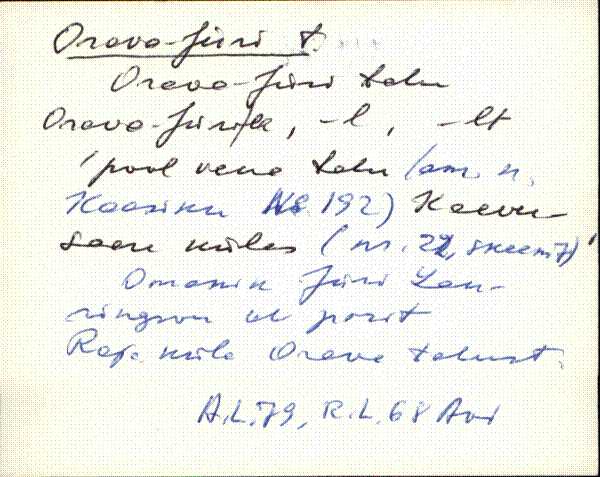 Orava-Jüri t.
Orava-Jüri talu
Orava-Jüri/le, -l, -lt
'pool vena talu (am. n.
Kaasiku № 192) Kaevu-
saare külas (nr. 22, skeem 7)'
Omanik Jüri Lau-
ringson ol pärit
Raja küla Orava talust.
A.L. 79, R.L. 68 Avi